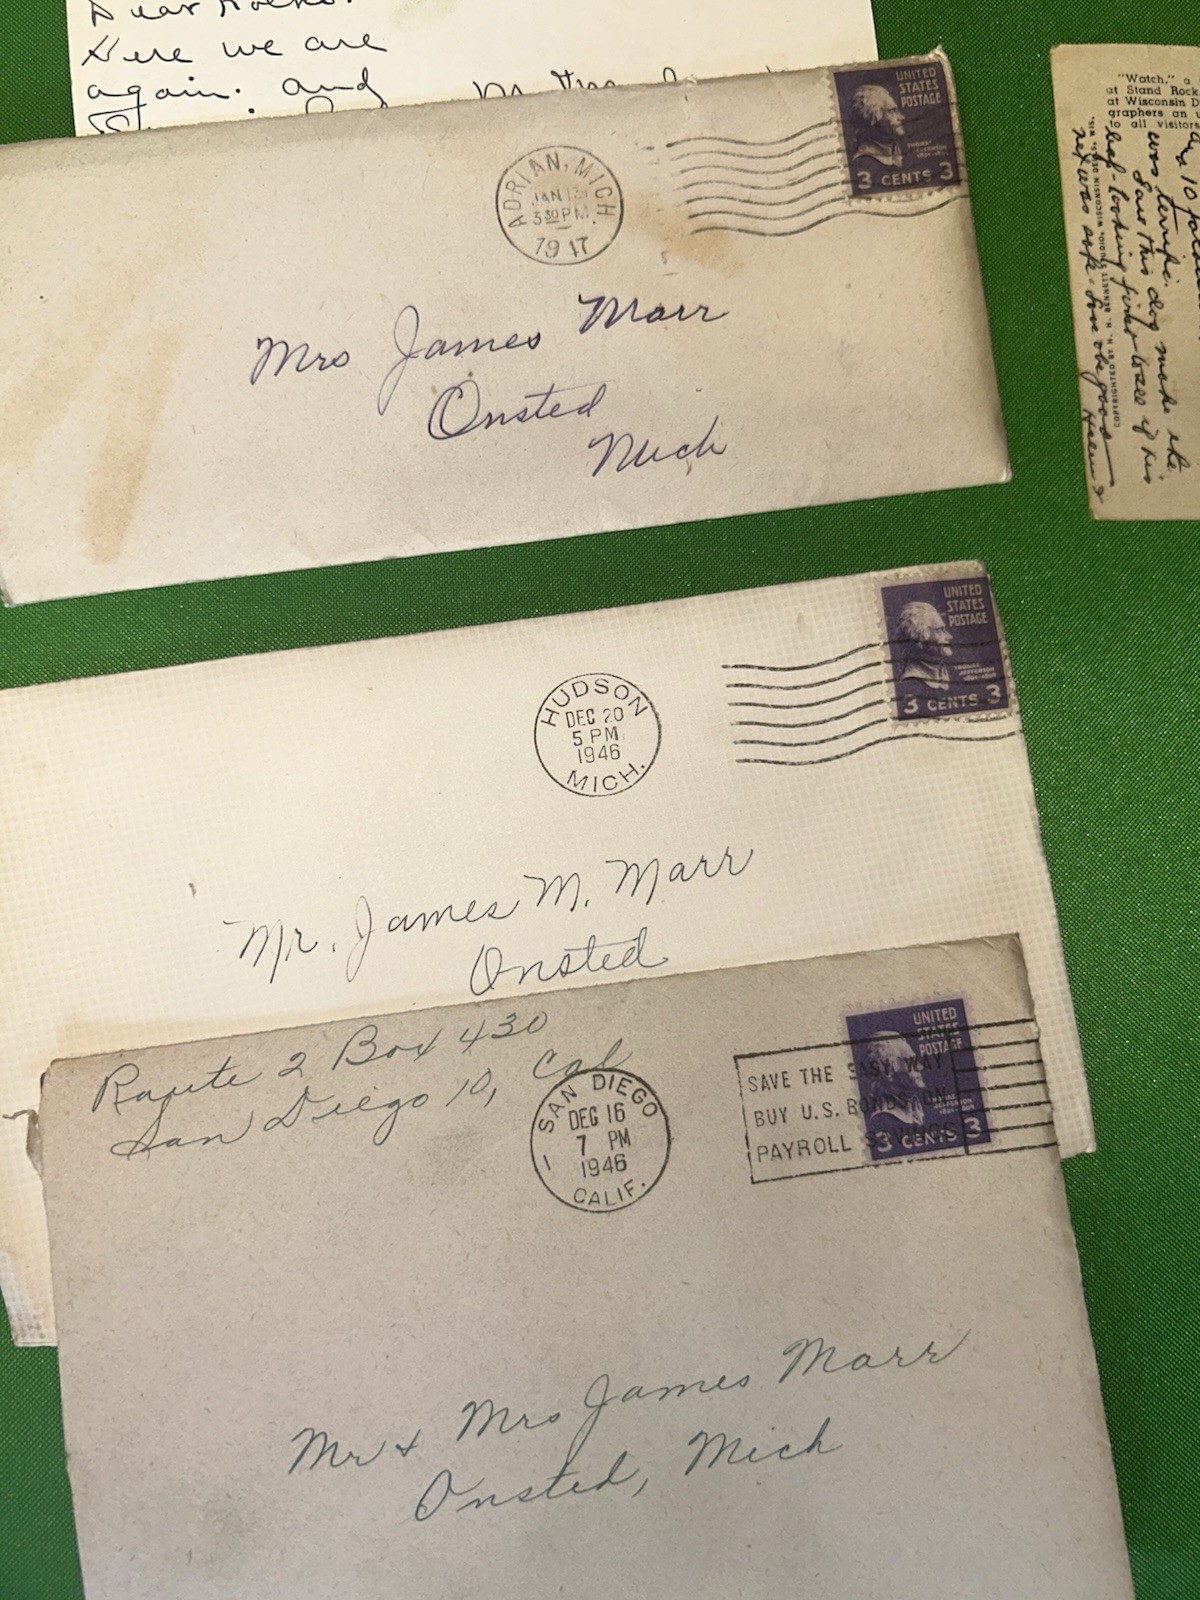 Dear Folks:
Here we are
again. and
UNITED
STATES
POSTAGE
THOMAS
JEFFERSON
3 CENTS 3
ADRIAN, MICH.
JAN 13
3 30 PM
1947
Mrs James Marr
Onsted
Mich
"Watch," a
at Stand Rock
at Wisconsin D
graphers an u
to all visitors
was terrific.
Saw this dog make the
leap - looking
UNITED
STATES
POSTAGE
THOMAS
JEFFERSON
1801-1809
3 CENTS 3
HUDSON
DEC 20
5 PM
1946
MICH.
Mr. James M. Marr
Onsted
Route 2 Box 430
San Diego 10, Cal
SAN DIEGO
DEC 16
7 PM
1946
1 CALIF.
SAVE THE EASY WAY
BUY U.S. BONDS ON
PAYROLL SAVINGS
UNITED
STATES
POSTAGE
3 CENTS 3
Mr & Mrs James Marr
Onsted, Mich